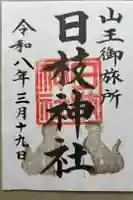 山王御旅所
日枝神社
令和八年三月十九日